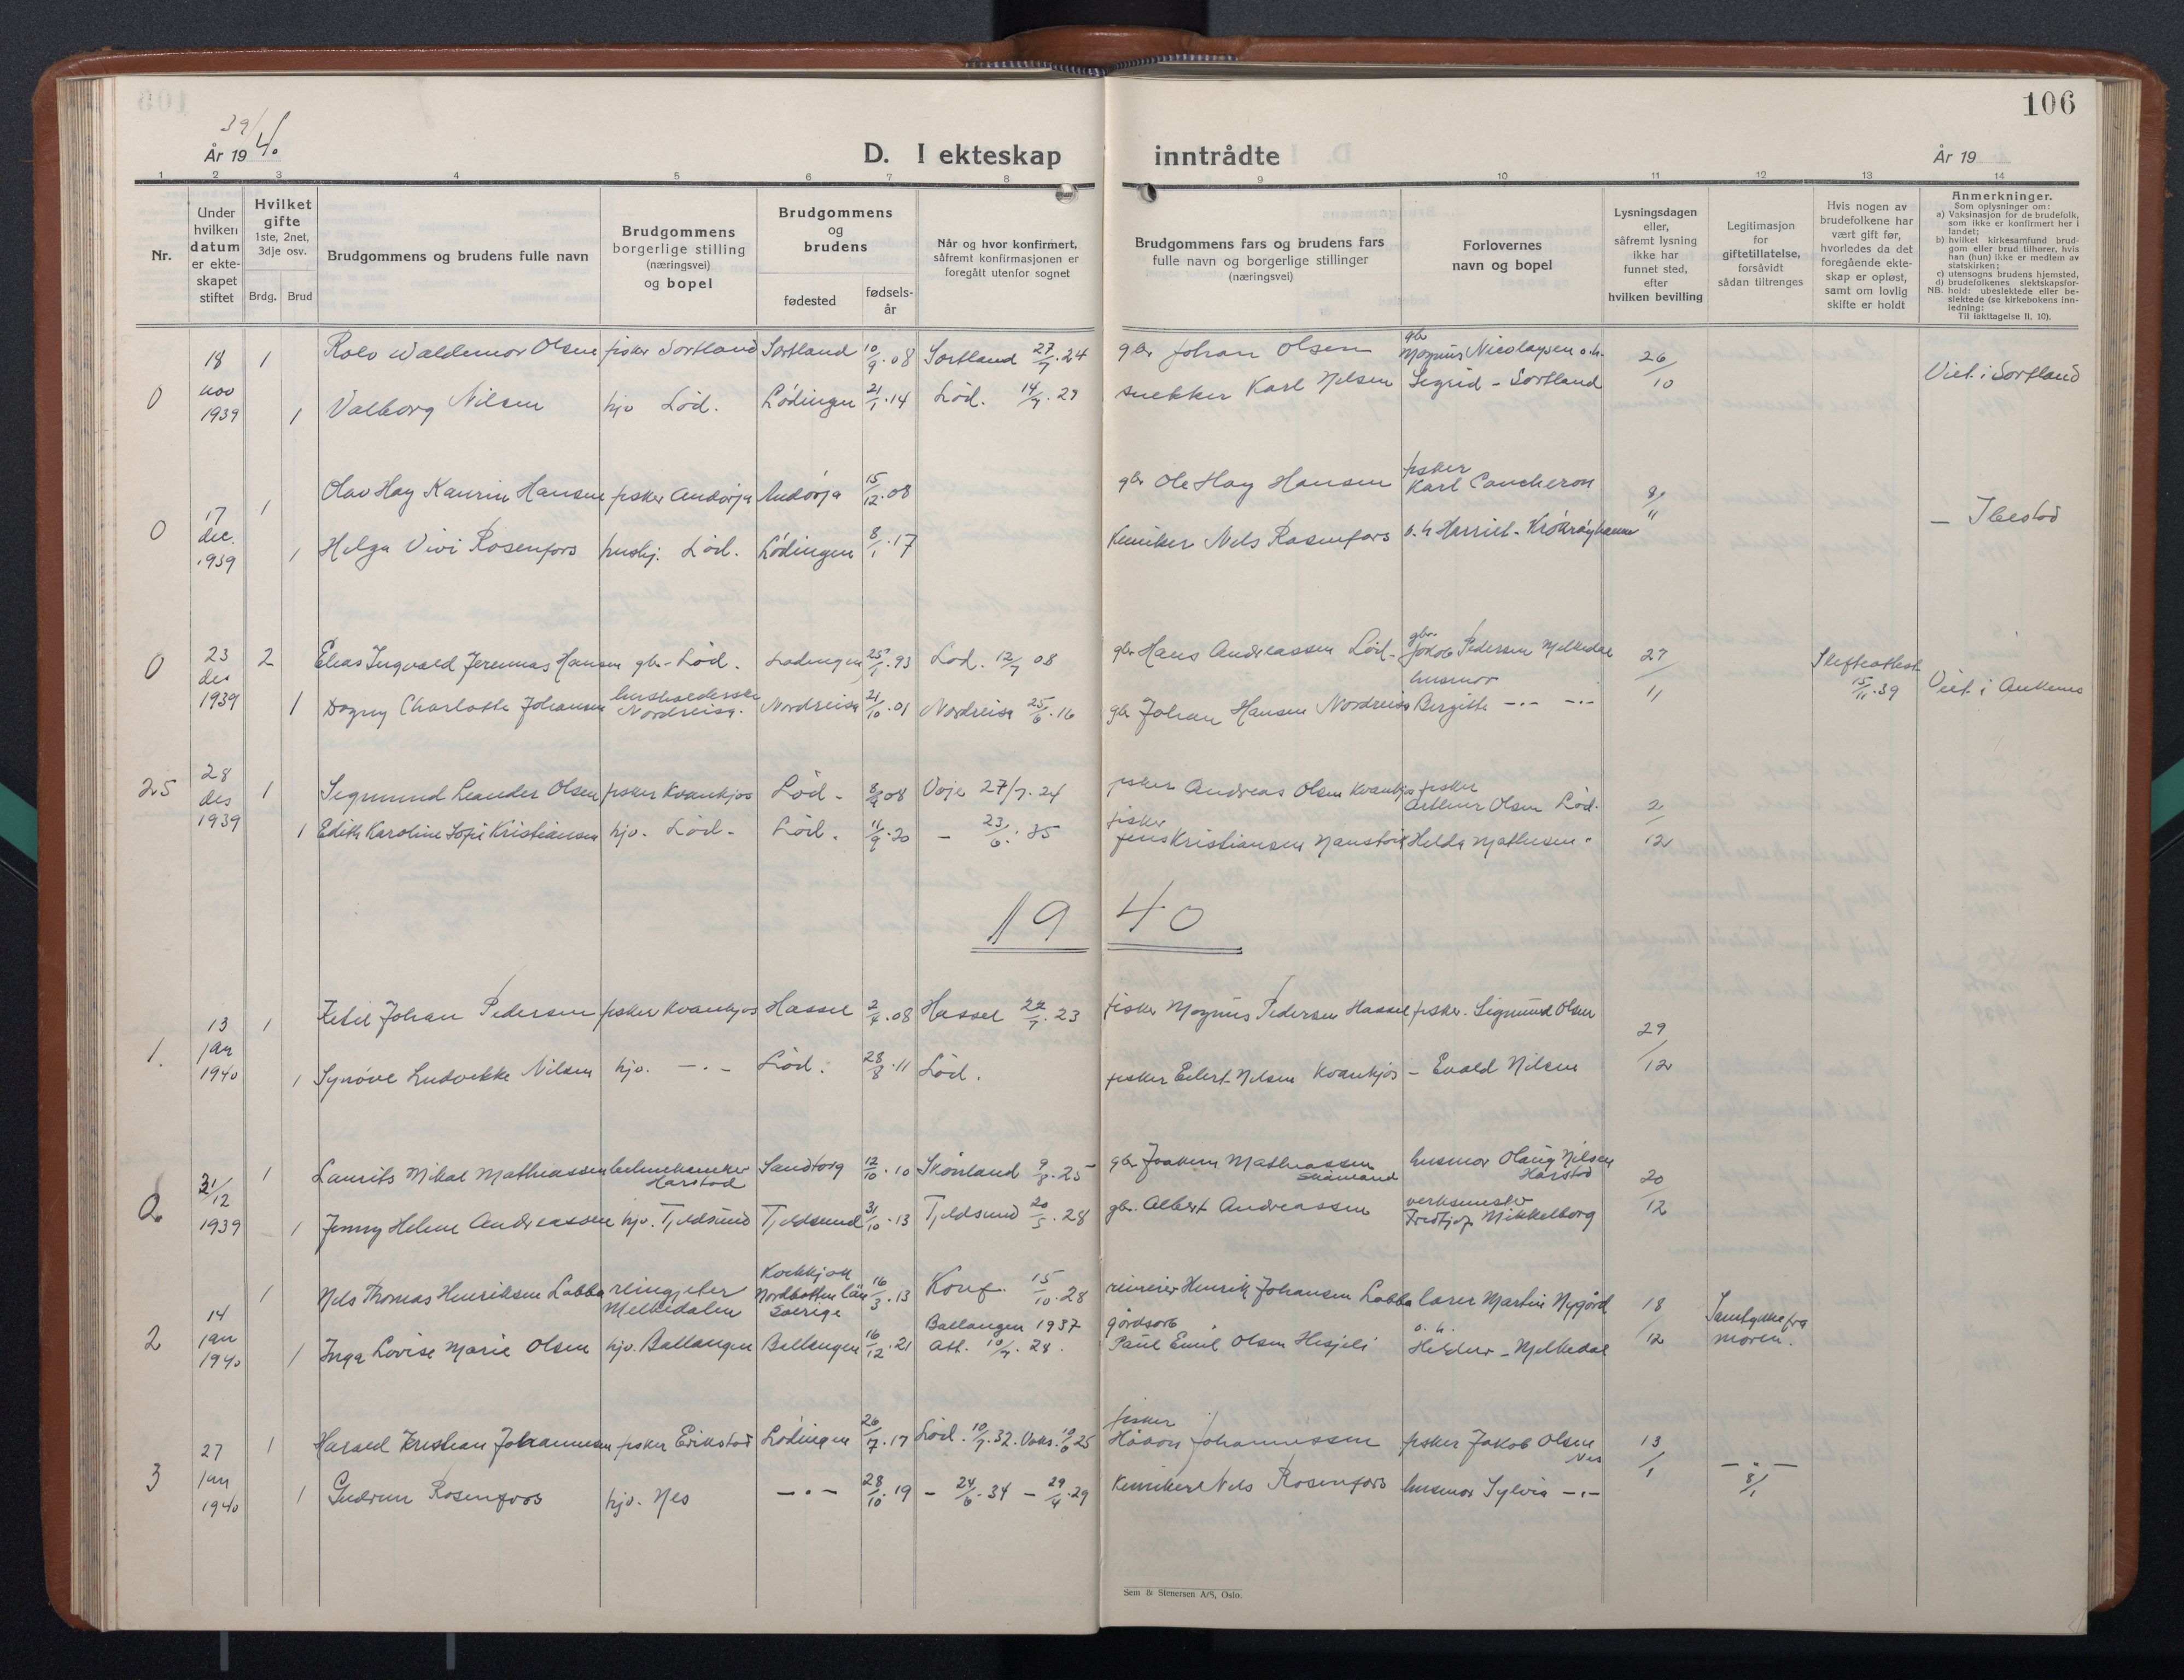 106
39/4.
År 19
D. I ekteskap inntrådte
År 19
1 2 3 4 5 6 7 8 9 10 11 12 13 14
Nr.
Under hvilken datum er ekteskapet stiftet
Hvilket gifte 1ste, 2net, 3dje osv.
Brdg. Brud
Brudgommens og brudens fulle navn
Brudgommens borgerlige stilling (næringsvei) og bopel
Brudgommens og brudens
fødested
fødselsår
Når og hvor konfirmert, såfremt konfirmasjonen er foregått utenfor sognet
Brudgommens fars og brudens fars fulle navn og borgerlige stillinger (næringsvei)
Forlovernes navn og bopel
Lysningsdagen eller, såfremt lysning ikke har funnet sted, efter hvilken bevilling
Legitimasjon for giftetillatelse, forsåvidt sådan tiltrenges
Hvis nogen av brudefolkene har vært gift før, hvorledes da det foregående ekteskap er opløst, samt om lovlig skifte er holdt
Anmerkninger.
Som oplysninger om:
a) Vaksinasjon for de brudefolk, som ikke er konfirmert her i landet;
b) hvilket kirkesamfund brudgom eller brud tilhører, hvis han (hun) ikke er medlem av statskirken;
c) utensogns brudens hjemsted,
d) brudefolkenes slektskapsforhold: ubeslektede eller beslektede (se kirkebokens innledning:
NB.
Til iakttagelse II. 10).
0 18 nov 1939 1 Rolv Waldemar Olsen fisker Sortland Sortland 10/9.08 Sortland 27/7.24 gbr Johan Olsen gbr Magnus Nicolaysen o.h. 26/10 Viet i Sortland
1 Valborg Nilsen hjv Lød. Lødingen 21/1.14 Lød. 14/7.29 snekker Karl Nilsen Sigrid - Sortland
0 17 dec. 1939 1 Olav Hay Kaurin Hansen fisker Andørja Andørja 15/12.08 gbr Ole Hay Hansen fisker Karl Cancheron 8/11 — Ibestad
1 Helga Vivi Rosenfors hushj. Lød. Lødingen 8/1.17 Kemiker Nels Rosenfors o.h Harriet - Krøkrøyhamn
0 23 des 1939 2 Elias Ingvald Jeremias Hansen gbr. Lød. Lødingen 25/1.93 Lød. 12/7 08 gbr Hans Andreassen Lød. gbr. Jakob Pedersen Melkedal 27/11 Skifteattest 15/11.39 Viet i Ankenes
1 Dagny Charlotte Johansen husholderske Nordreisa. Nordreisa 21/10.01 Nordreisa 25/6.16 gbr Johan Hansen Nordreisa husmor Birgitte -.- -.-
25 28 des 1939 1 Sigmund Leander Olsen fisker Kvankjos Lød - 8/9 08 Voje 27/7.24 fisker Andreas Olsen Kvankjos fisker Arthur Olsen Lød. 2/12
1 Edith Karoline Sofie Kristiansen hjv. Lød - Lød. 11/9.20 - 23/6.35 fisker Jens Kristiansen Nanstok Helda Mathisen "
1940
1. 13 jan 1940 1 Ketil Johan Pedersen fisker Kvankjos Hassel 2/4.08 Hassel 22/7.23 fisker Magnus Pedersen Hassel fisker. Sigmund Olsen 29/12
1 Synøve Ludvikke Nilsen hjv. -.- Lød. 28/8.11 Lød. fisker Eilert Nilsen Kvankjos - Evald Nilsen
0. 31/12 1939 1 Laurits Mikal Mathiassen Harstad Sandtorg 12/10.10 Skånland 9/8.25 gbr Joakim Mathiassen Skånland husmor Olaug Nilsen Harstad 20/12
1 Jenny Helene Andreassen hjv. Tjeldsund Tjeldsund 31/10.13 Tjeldsund 20/5.28 gbr. Albert Andreassen verksmester Fredtjof Mikkelborg
2 14 jan 1940 1 Nils Thomas Henriksen Labba reingjeter Melkedalen Nordbotten län Sverige 16/3.13 Konf. 15/10.28 reineier Henrik Johansen Labba lærer Martin Nygård 18/12 Samtykke fra moren.
1 Inga Lovise Marie Olsen hjv. Ballangen Ballangen 16/12.21 Ballangen 1937 att. 10/7.28. gårdsarb Paul Emil Olsen Hesjeli o.h. Heldur - Melkedal
3 27 jan 1940 1 Harald Kristian Johannesen fisker Erikstad Lødingen 26/7.17 Lød. 10/7.32. Vaks. 10/6 25 fisker Håkon Johannessen fisker Jakob Olsen Nes 13/1 -.- 8/1
1 Gudrun Rosenfors hjv. Nes -.- 28/10.19 - 24/6.34 - 29/4.29 Kemiker Nels Rosenfors husmor Sylvia -.-
Sem & Stenersen A/S, Oslo.